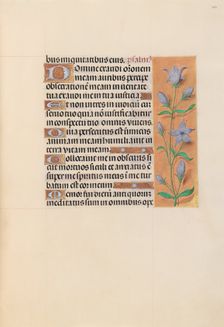 bus iniquitatibus eius. psalm
Domine exaudi orationem
meam auribus percipe
obsecrationem meam in veritate
tua exaudi me in tua iusticia
Et non intres in iudicium cum
servo tuo quia non iustificabitur
in conspectu tuo omnis vivens
Quia persecutus est inimicus
animam meam humiliavit in
terra vitam meam
Collocavit me in obscuris si
cut mortuos seculi et anxiatus e
super me spiritus meus in me tur
batum est cor meum
Memor fui dierum antiquorum
meditatus sum in omnibus ope